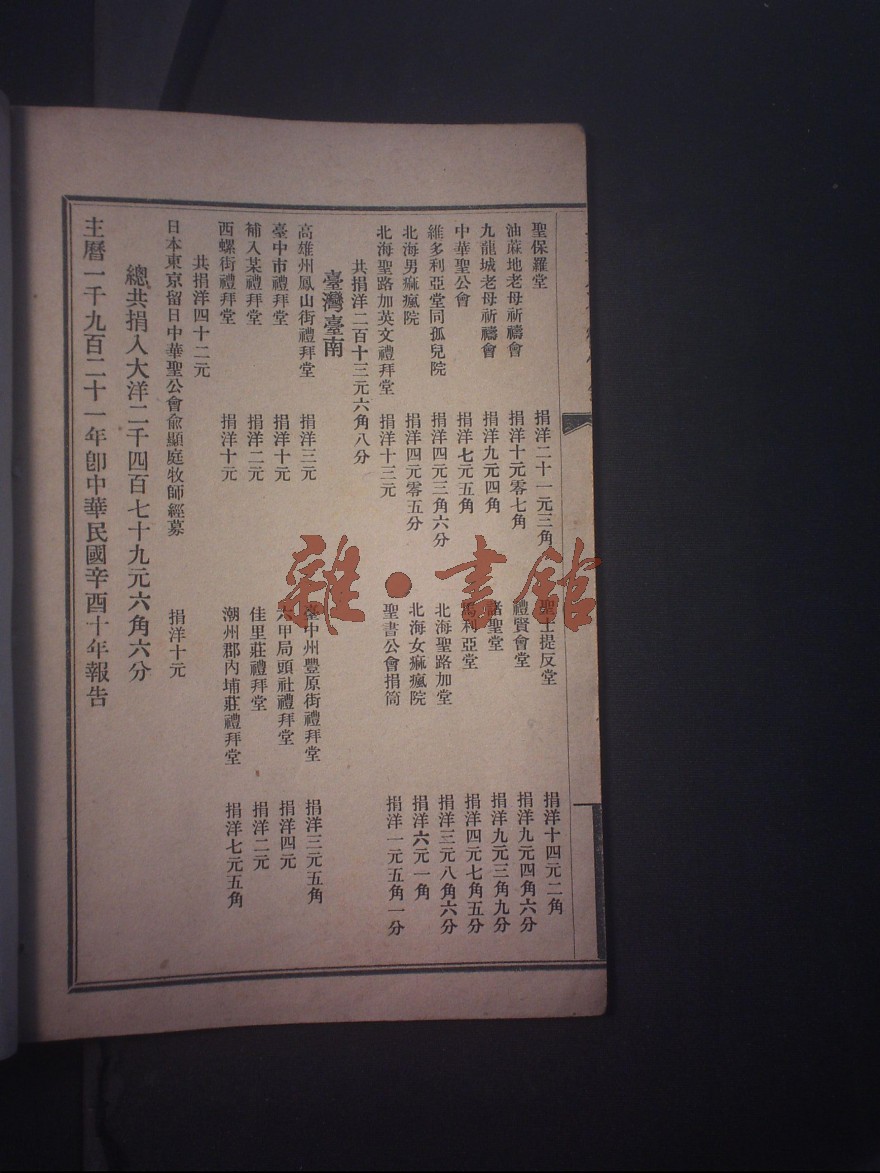 聖保羅堂　捐洋二十一元三角　聖士提反堂　捐洋十四元二角
油蔴地老母祈禱會　捐洋十元零七角　禮賢會堂　捐洋九元四角六分
九龍城老母祈禱會　捐洋九元四角　諸聖堂　捐洋九元三角九分
中華聖公會　捐洋七元五角　馬利亞堂　捐洋四元七角五分
維多利亞堂同孤兒院　捐洋四元三角六分　北海聖路加堂　捐洋三元八角六分
北海男痲瘋院　捐洋四元零五分　北海女痲瘋院　捐洋六元一角
北海聖路加英文禮拜堂　捐洋十三元　聖書公會捐筒　捐洋一元五角一分
共捐洋二百十三元六角八分
臺灣臺南
高雄州鳳山街禮拜堂　捐洋三元　臺中州豐原街禮拜堂　捐洋三元五角
臺中市禮拜堂　捐洋十元　六甲局頭社禮拜堂　捐洋四元
補入某禮拜堂　捐洋二元　佳里莊禮拜堂　捐洋二元
西螺街禮拜堂　捐洋十元　潮州郡內埔莊禮拜堂　捐洋七元五角
共捐洋四十二元
日本東京留日中華聖公會俞顯庭牧師經募　捐洋十元
總共捐入大洋二千四百七十九元六角六分
主曆一千九百二十一年卽中華民國辛酉十年報告
雜·書館